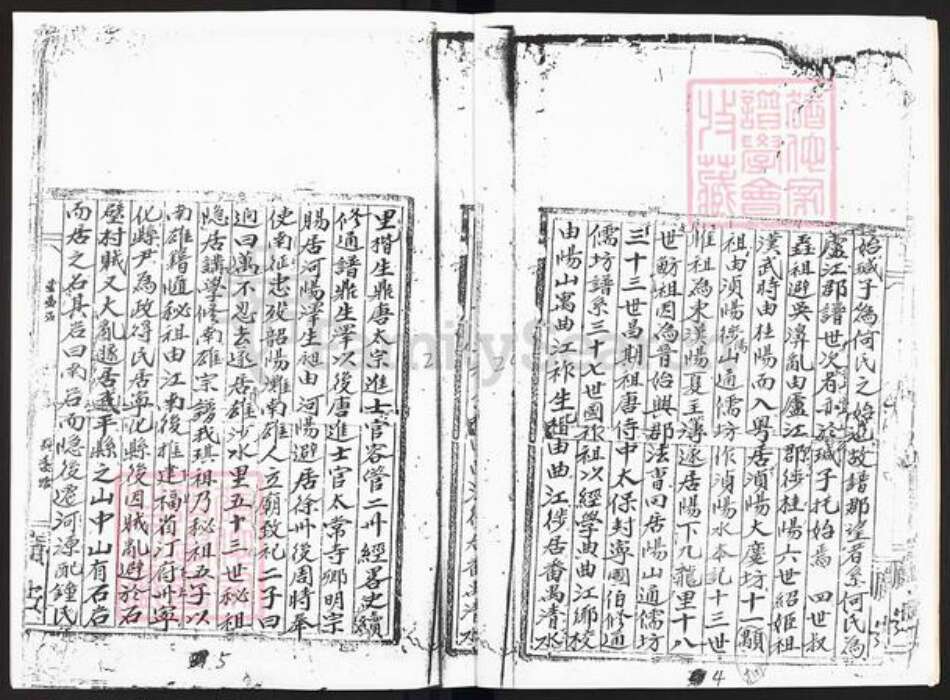 始瑊子為何氏之始也故譜郡望者系何氏為
廬江郡譜世次者亦於瑊子托始焉 四世叔
鑫祖避吳濞亂由廬江郡徙桂陽六世紹姬祖
漢武時由桂陽而入粵居湞陽大慶坊十一顒
祖由湞陽徙山通儒坊作湞陽水本記十三世
惟祖為東漢陽夏主簿遂居陽下九龍里十八
世魴祖因為晉始興郡法曹回居陽山通儒坊
三十三世昌期祖唐侍中太保封寧國伯修通
儒坊譜系三十七世國祚祖以經學曲江鄉校
由陽山寓曲江祚生楷由曲江徙居番禺清水
里楷生鼎唐太宗進士官容管二州經畧史續
修通譜鼎生澤以後唐進士官太常寺鄉明宗
賜居河陽澤生昶由河陽避居徐州後周時奉
使南征忠歿韶陽灘南雄人立廟致祀二子曰
迥曰萬不忍去遂居雄沙水里五十三世秘祖
隱居講學修南雄宗譜我琪祖乃秘祖五子以
南雄籍隨秘祖由江南後推建福省汀府州寧
化縣尹為政得民居寧化縣後因賊亂避於石
壁村賊又大亂遂居武平縣之山中山有石岩
而居之名其岩曰南岩而隱後遷河源配鍾氏
收藏
譜學會
5
4